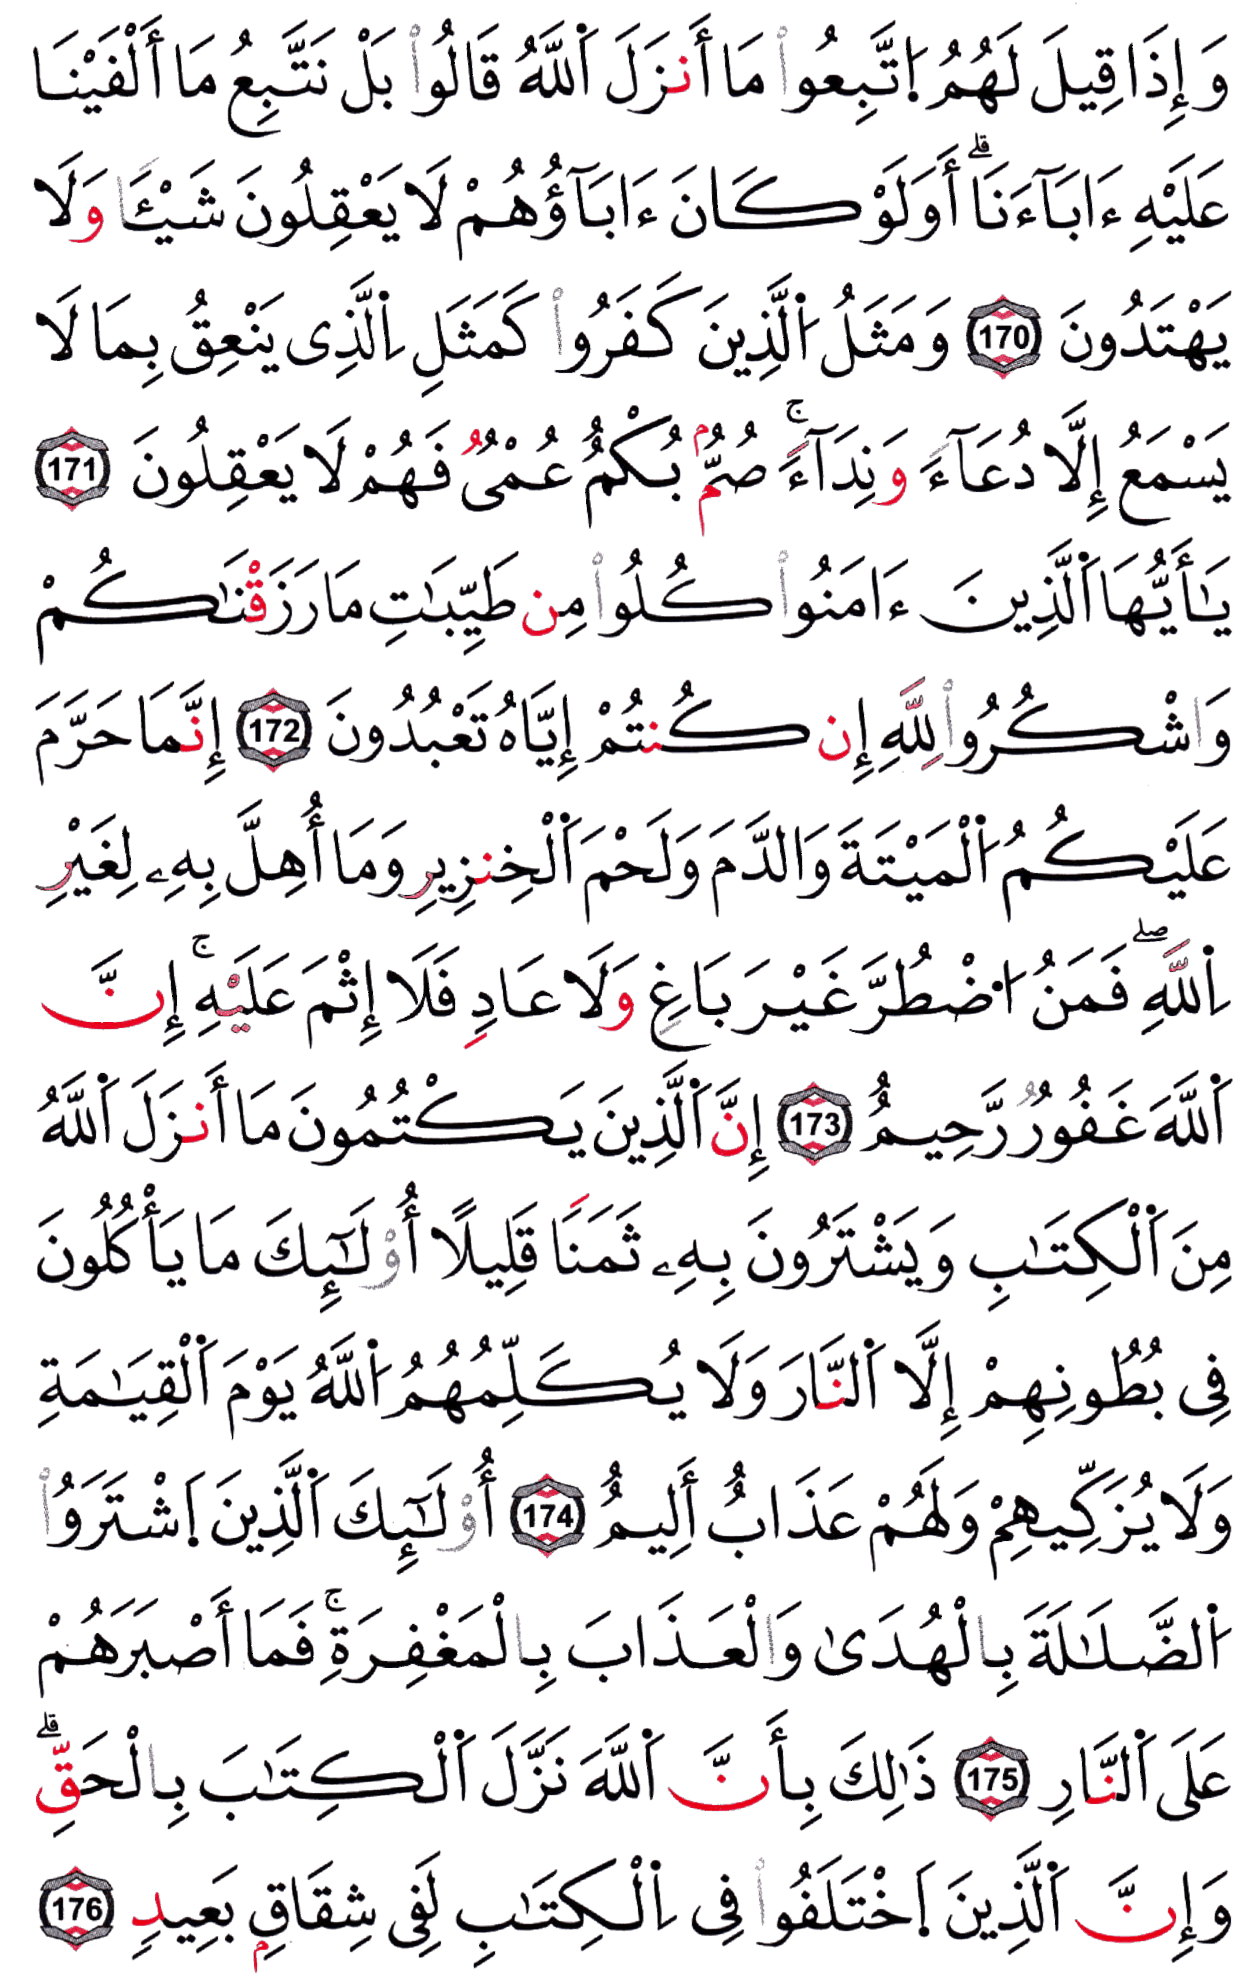 وَإِذَا قِيلَ لَهُمُ اتَّبِعُوا مَا أَنزَلَ اللَّهُ قَالُوا بَلْ نَتَّبِعُ مَا أَلْفَيْنَا
عَلَيْهِ ءَابَآءَنَا ۗ أَوَلَوْ كَانَ ءَابَآؤُهُمْ لَا يَعْقِلُونَ شَيْـًٔا وَلَا
يَهْتَدُونَ 170 وَمَثَلُ الَّذِينَ كَفَرُوا كَمَثَلِ الَّذِى يَنْعِقُ بِمَا لَا
يَسْمَعُ إِلَّا دُعَآءً وَنِدَآءً ۚ صُمٌّ بُكْمٌ عُمْىٌ فَهُمْ لَا يَعْقِلُونَ 171
يَٰٓأَيُّهَا الَّذِينَ ءَامَنُوا كُلُوا مِن طَيِّبَٰتِ مَا رَزَقْنَٰكُمْ
وَاشْكُرُوا لِلَّهِ إِن كُنتُمْ إِيَّاهُ تَعْبُدُونَ 172 إِنَّمَا حَرَّمَ
عَلَيْكُمُ الْمَيْتَةَ وَالدَّمَ وَلَحْمَ الْخِنزِيرِ وَمَا أُهِلَّ بِهِۦ لِغَيْرِ
اللَّهِ ۖ فَمَنُ اضْطُرَّ غَيْرَ بَاغٍ وَلَا عَادٍ فَلَا إِثْمَ عَلَيْهِ ۚ إِنَّ
اللَّهَ غَفُورٌ رَّحِيمٌ 173 إِنَّ الَّذِينَ يَكْتُمُونَ مَا أَنزَلَ اللَّهُ
مِنَ الْكِتَٰبِ وَيَشْتَرُونَ بِهِۦ ثَمَنًا قَلِيلًا أُوْلَٰٓئِكَ مَا يَأْكُلُونَ
فِى بُطُونِهِمْ إِلَّا النَّارَ وَلَا يُكَلِّمُهُمُ اللَّهُ يَوْمَ الْقِيَٰمَةِ
وَلَا يُزَكِّيهِمْ وَلَهُمْ عَذَابٌ أَلِيمٌ 174 أُوْلَٰٓئِكَ الَّذِينَ اشْتَرَوُا
الضَّلَٰلَةَ بِالْهُدَىٰ وَالْعَذَابَ بِالْمَغْفِرَةِ ۚ فَمَا أَصْبَرَهُمْ
عَلَى النَّارِ 175 ذَٰلِكَ بِأَنَّ اللَّهَ نَزَّلَ الْكِتَٰبَ بِالْحَقِّ ۗ
وَإِنَّ الَّذِينَ اخْتَلَفُوا فِى الْكِتَٰبِ لَفِى شِقَاقٍ بَعِيدٍ 176